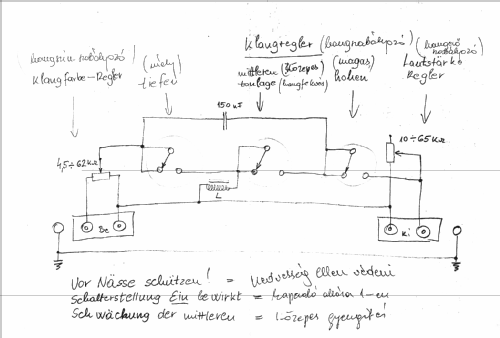 Klangregler (hangszabályozó)
Klangfarbe-Regler
(mély)
tiefen
mittleren (közepes)
tonlage (hangfekvés)
(magas)
hohen
Lautstärke
Regler
150 nF
4,5÷62KΩ
10÷65KΩ
L
Be
Ki
Vor Nässe schützen! = Nedvesség ellen védeni
Schalterstellung Ein bewirkt = Kapcsoló állása 1-en
Schwächung der mittleren = közepes gyengítés